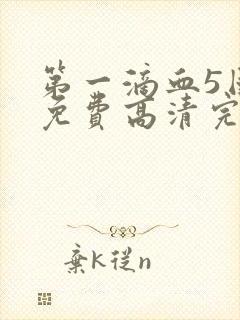 第一滴血5国
免费高清完
棄k從n